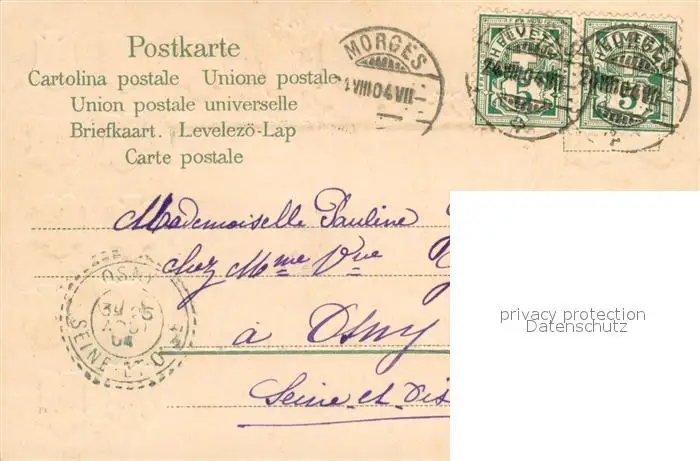 Postkarte
Cartolina postale Unione postale
Union postale universelle
Briefkaart. Levelező-Lap
Carte postale
MORGES
VIII 04 VII
HELVETIA
5
MORGES
24 VIII 04 VII
5
Mademoiselle Pauline
chez Mme Vve
à Osny
Seine et Ois
OSNY
25
AOUT
04
SEINE-ET-OISE
privacy protection
Datenschutz